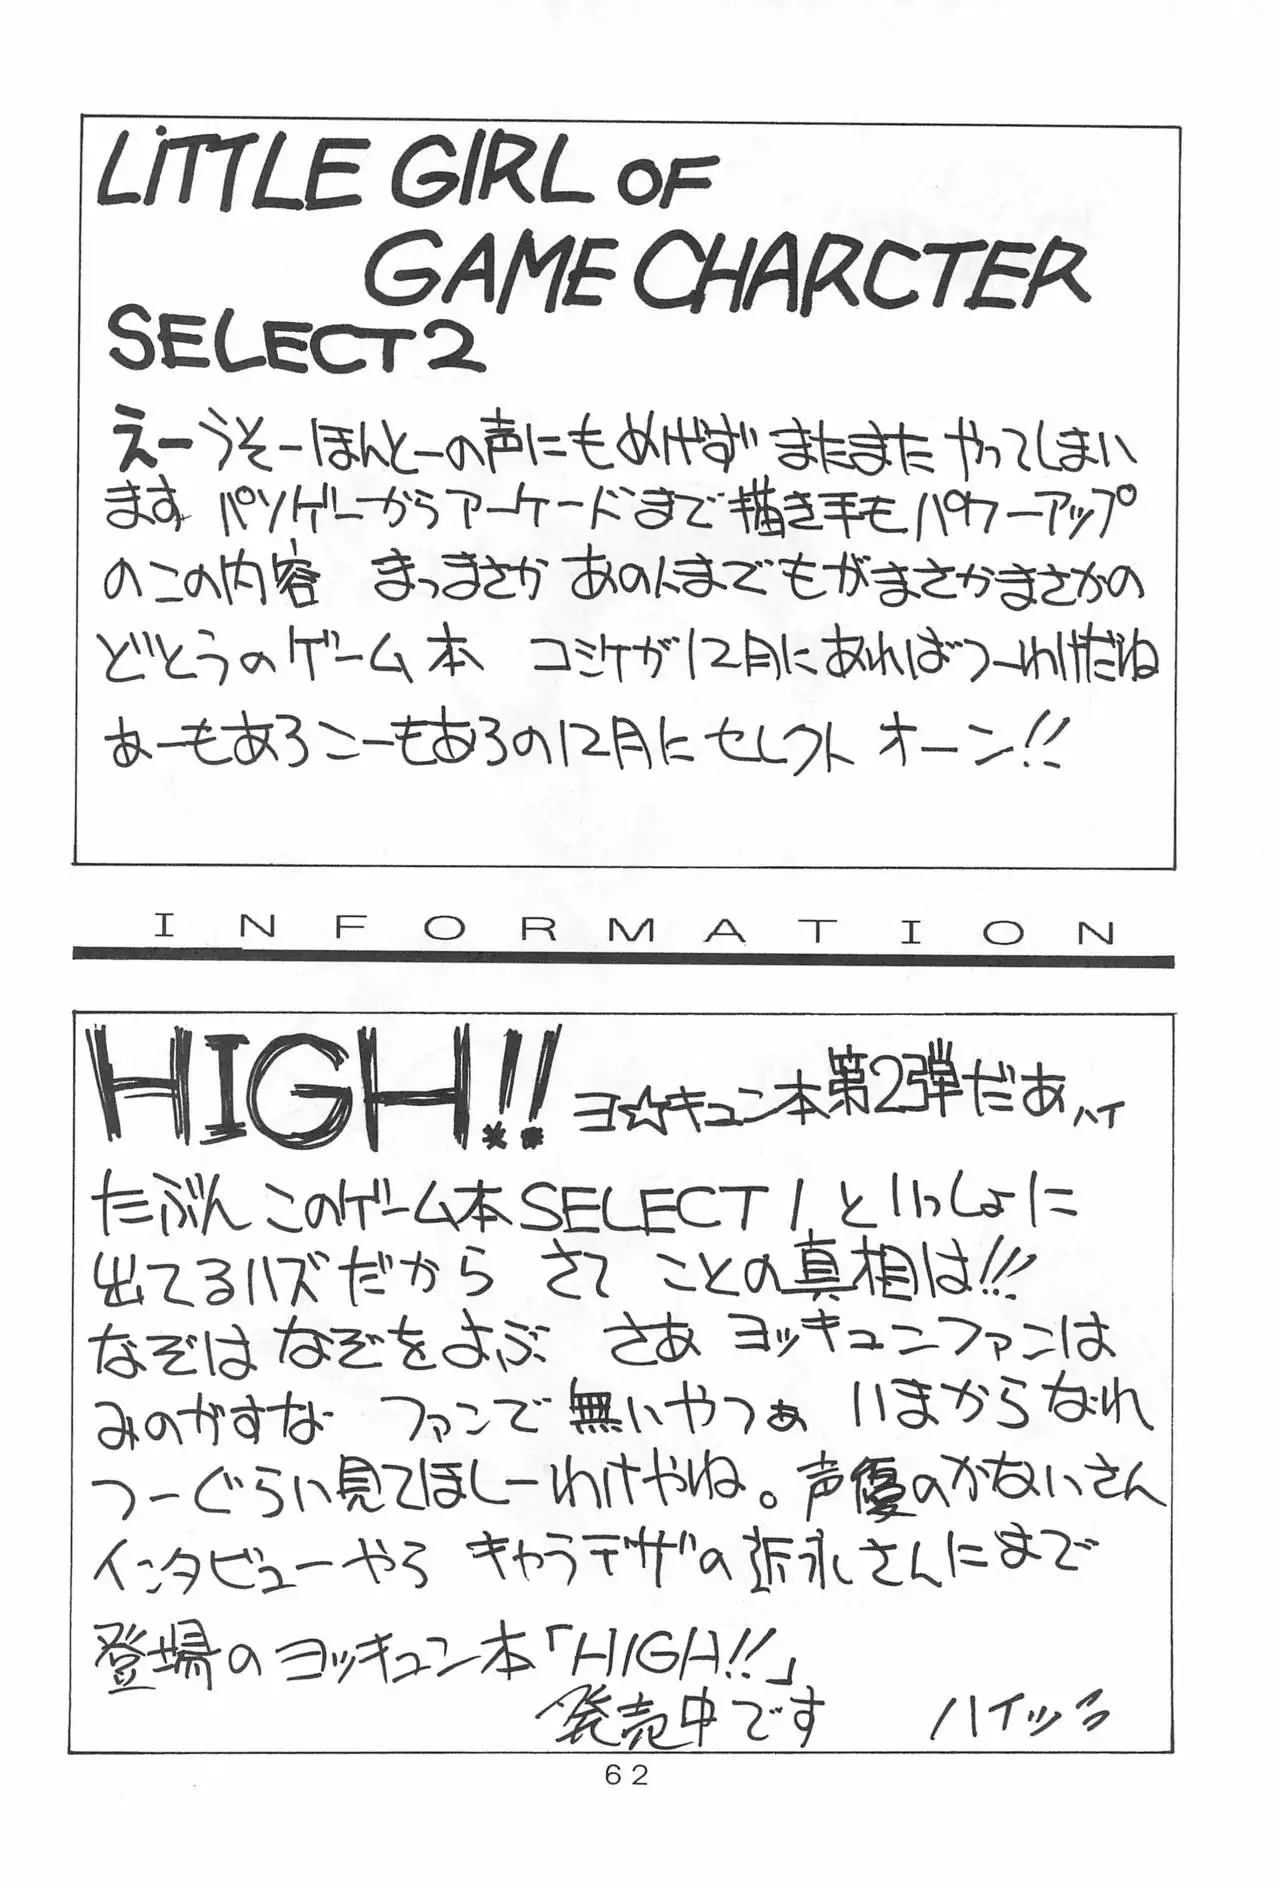 LiTTLE GIRL OF
GAME CHARCTER
SELECT2
えーうそーほんとーの声にもめげず またまた やってしまい
ます パソゲーからアーケードまで描き手もパワーアップ
のこの内容 まっまさか あの人までもがまさかまさかの
どとうのゲーム本 コミケが12月にあればつーわけだね
あーもあろこーもあろの12月にセレクト オーン!!
INFORMATION
HIGH!!
ヨ☆キュン本第2弾だぁ ハイ
たぶん このゲーム本SELECT1 といっしょに
出てるハズだから さて ことの真相は!!!
なぞは なぞをよぶ さあ ヨッキュンファンは
みのがすな ファンで無いやつぁ いまからなれ
つーぐらい見てほしーわけやね。声優のかないさん
インタビューやら キャラデザの 永さんにまで
登場のヨッキュン本「HIGH!!」
発売中です ハイッ
62